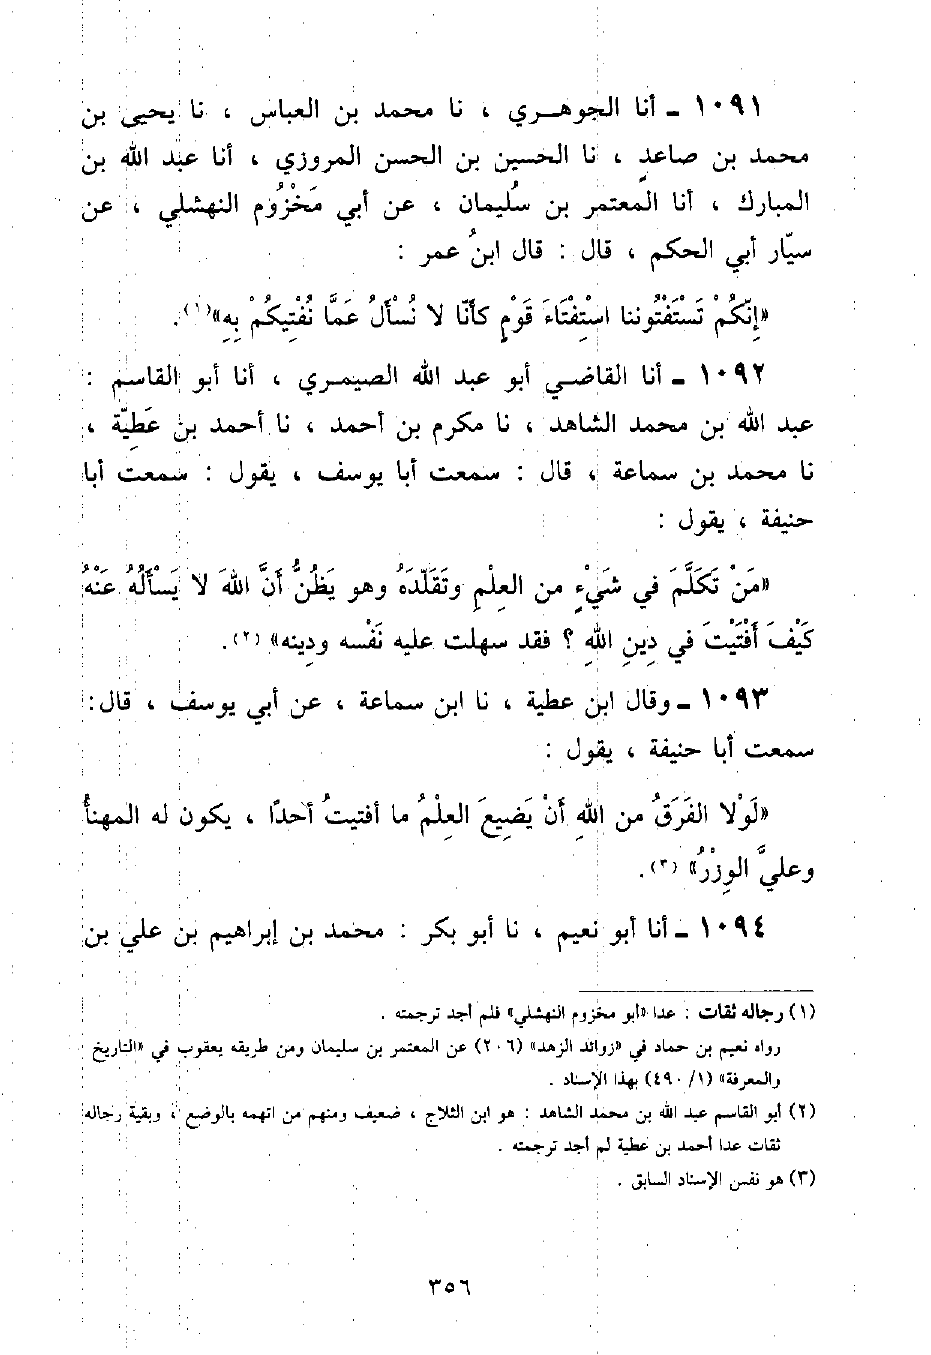 ١٠٩١ ـ أنا الجوهــري ، نا محمد بن العباس ، نا يحيى بن
محمد بن صاعدٍ ، نا الحسين بن الحسن المروزي ، أنا عبد الله بن
المبارك ، أنا المعتمر بن سُليمان ، عن أبي مَخْزُوم النهشلي ، عن
سيّار أبي الحكم ، قال : قال ابنُ عمر :
«إنّكُمْ تَسْتَفْتُوننا اسْتِفْتَاءَ قَوْمٍ كأنّا لا نُسْأَلُ عَمَّا نُفْتِيكُمْ بِهِ»(١).
١٠٩٢ ـ أنا القاضـي أبو عبد الله الصيمـري ، أنا أبو القاسم :
عبد الله بن محمد الشاهد ، نا مكرم بن أحمد ، نا أحمد بن عَطِيّة ،
نا محمد بن سماعة ، قال : سمعت أبا يوسف ، يقول : سمعت أبا
حنيفة ، يقول :
«مَنْ تَكَلَّمَ في شَيْءٍ من العِلْمِ وتَقَلّدَهُ وهو يَظُنُّ أَنَّ اللهَ لا يَسْأَلُهُ عَنْهُ
كَيْفَ أَفْتَيْتَ في دِينِ اللهِ ؟ فقد سهلت عليه نَفْسه ودِينه» (٢).
١٠٩٣ ـ وقال ابن عطية ، نا ابن سماعة ، عن أبي يوسف ، قال:
سمعت أبا حنيفة ، يقول :
«لَوْلا الفَرَقُ من اللهِ أَنْ يَضِيعَ العِلْمُ ما أفتيتُ أحدًا ، يكون له المهنأُ
وعليَّ الوِزْرُ» (٣).
١٠٩٤ ـ أنا أبو نعيم ، نا أبو بكر : محمد بن إبراهيم بن علي بن
(١) رجاله ثقات : عدا «أبو مخزوم النهشلي» فلم أجد ترجمته .
رواه نعيم بن حماد في «زوائد الزهد» (٢٠٦) عن المعتمر بن سليمان ومن طريقه يعقوب في «التاريخ
والمعرفة» (١/ ٤٩٠) بهذا الإسناد .
(٢) أبو القاسم عبد الله بن محمد الشاهد : هو ابن الثلاج ، ضعيف ومنهم من اتهمه بالوضع ، وبقية رجاله
ثقات عدا أحمد بن عطية لم أجد ترجمته .
(٣) هو نفس الإسناد السابق .
٣٥٦